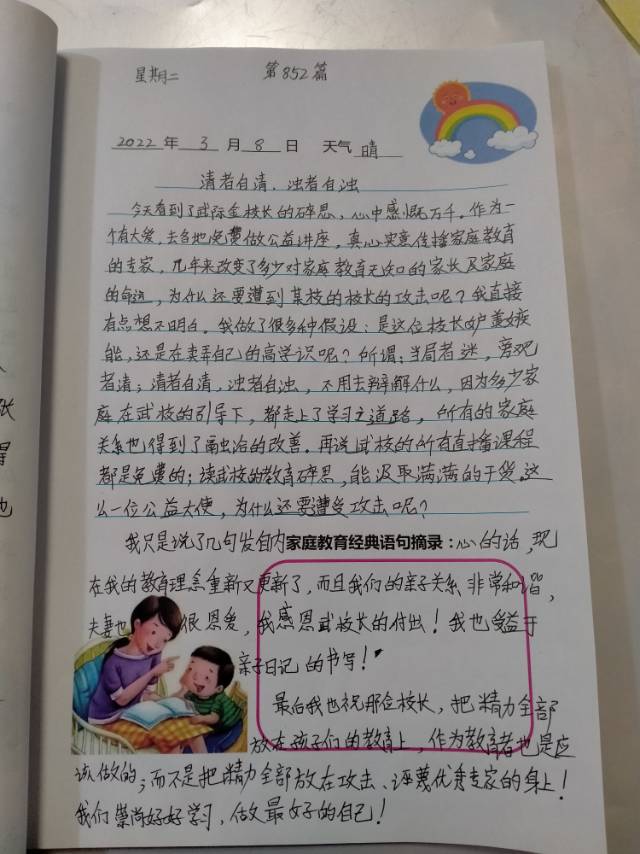 星期二 第852篇
2022年 3月 8日 天气 晴
清者自清，浊者自浊
今天看到了武际金校长的碎思，心中感慨万千。作为一
个有大爱，去各地免费做公益讲座，真心实意传播家庭教育
的专家，几年来改变了多少对家庭教育无知的家长及家庭
的命运，为什么还要遭到某校的校长的攻击呢？我直接
有点想不明白。我做了很多种假设：是这位校长妒羡嫉
能，还是在卖弄自己的高学识呢？所谓：当局者迷，旁观
者清；清者自清，浊者自浊，不用去辩解什么，因为多少家
庭在武校的引导下，都走上了学习之道路，所有的家庭
关系也得到了融洽的改善。再说武校的所有直播课程
都是免费的；读武校的教育碎思，能汲取满满的干货。这
么一位公益大使，为什么还要遭受攻击呢？
我只是说了几句发自内家庭教育经典语句摘录：心的话，现
在我的教育理念重新又更新了，而且我们的亲子关系非常和谐，
夫妻也很恩爱，我感恩武校长的付出！我也受益于
亲子日记的书写！
最后我也祝那位校长，把精力全部
放在孩子们的教育上，作为教育者也是应
该做的；而不是把精力全部放在攻击、诬蔑优秀专家的身上！
我们崇尚好好学习，做最好的自己！